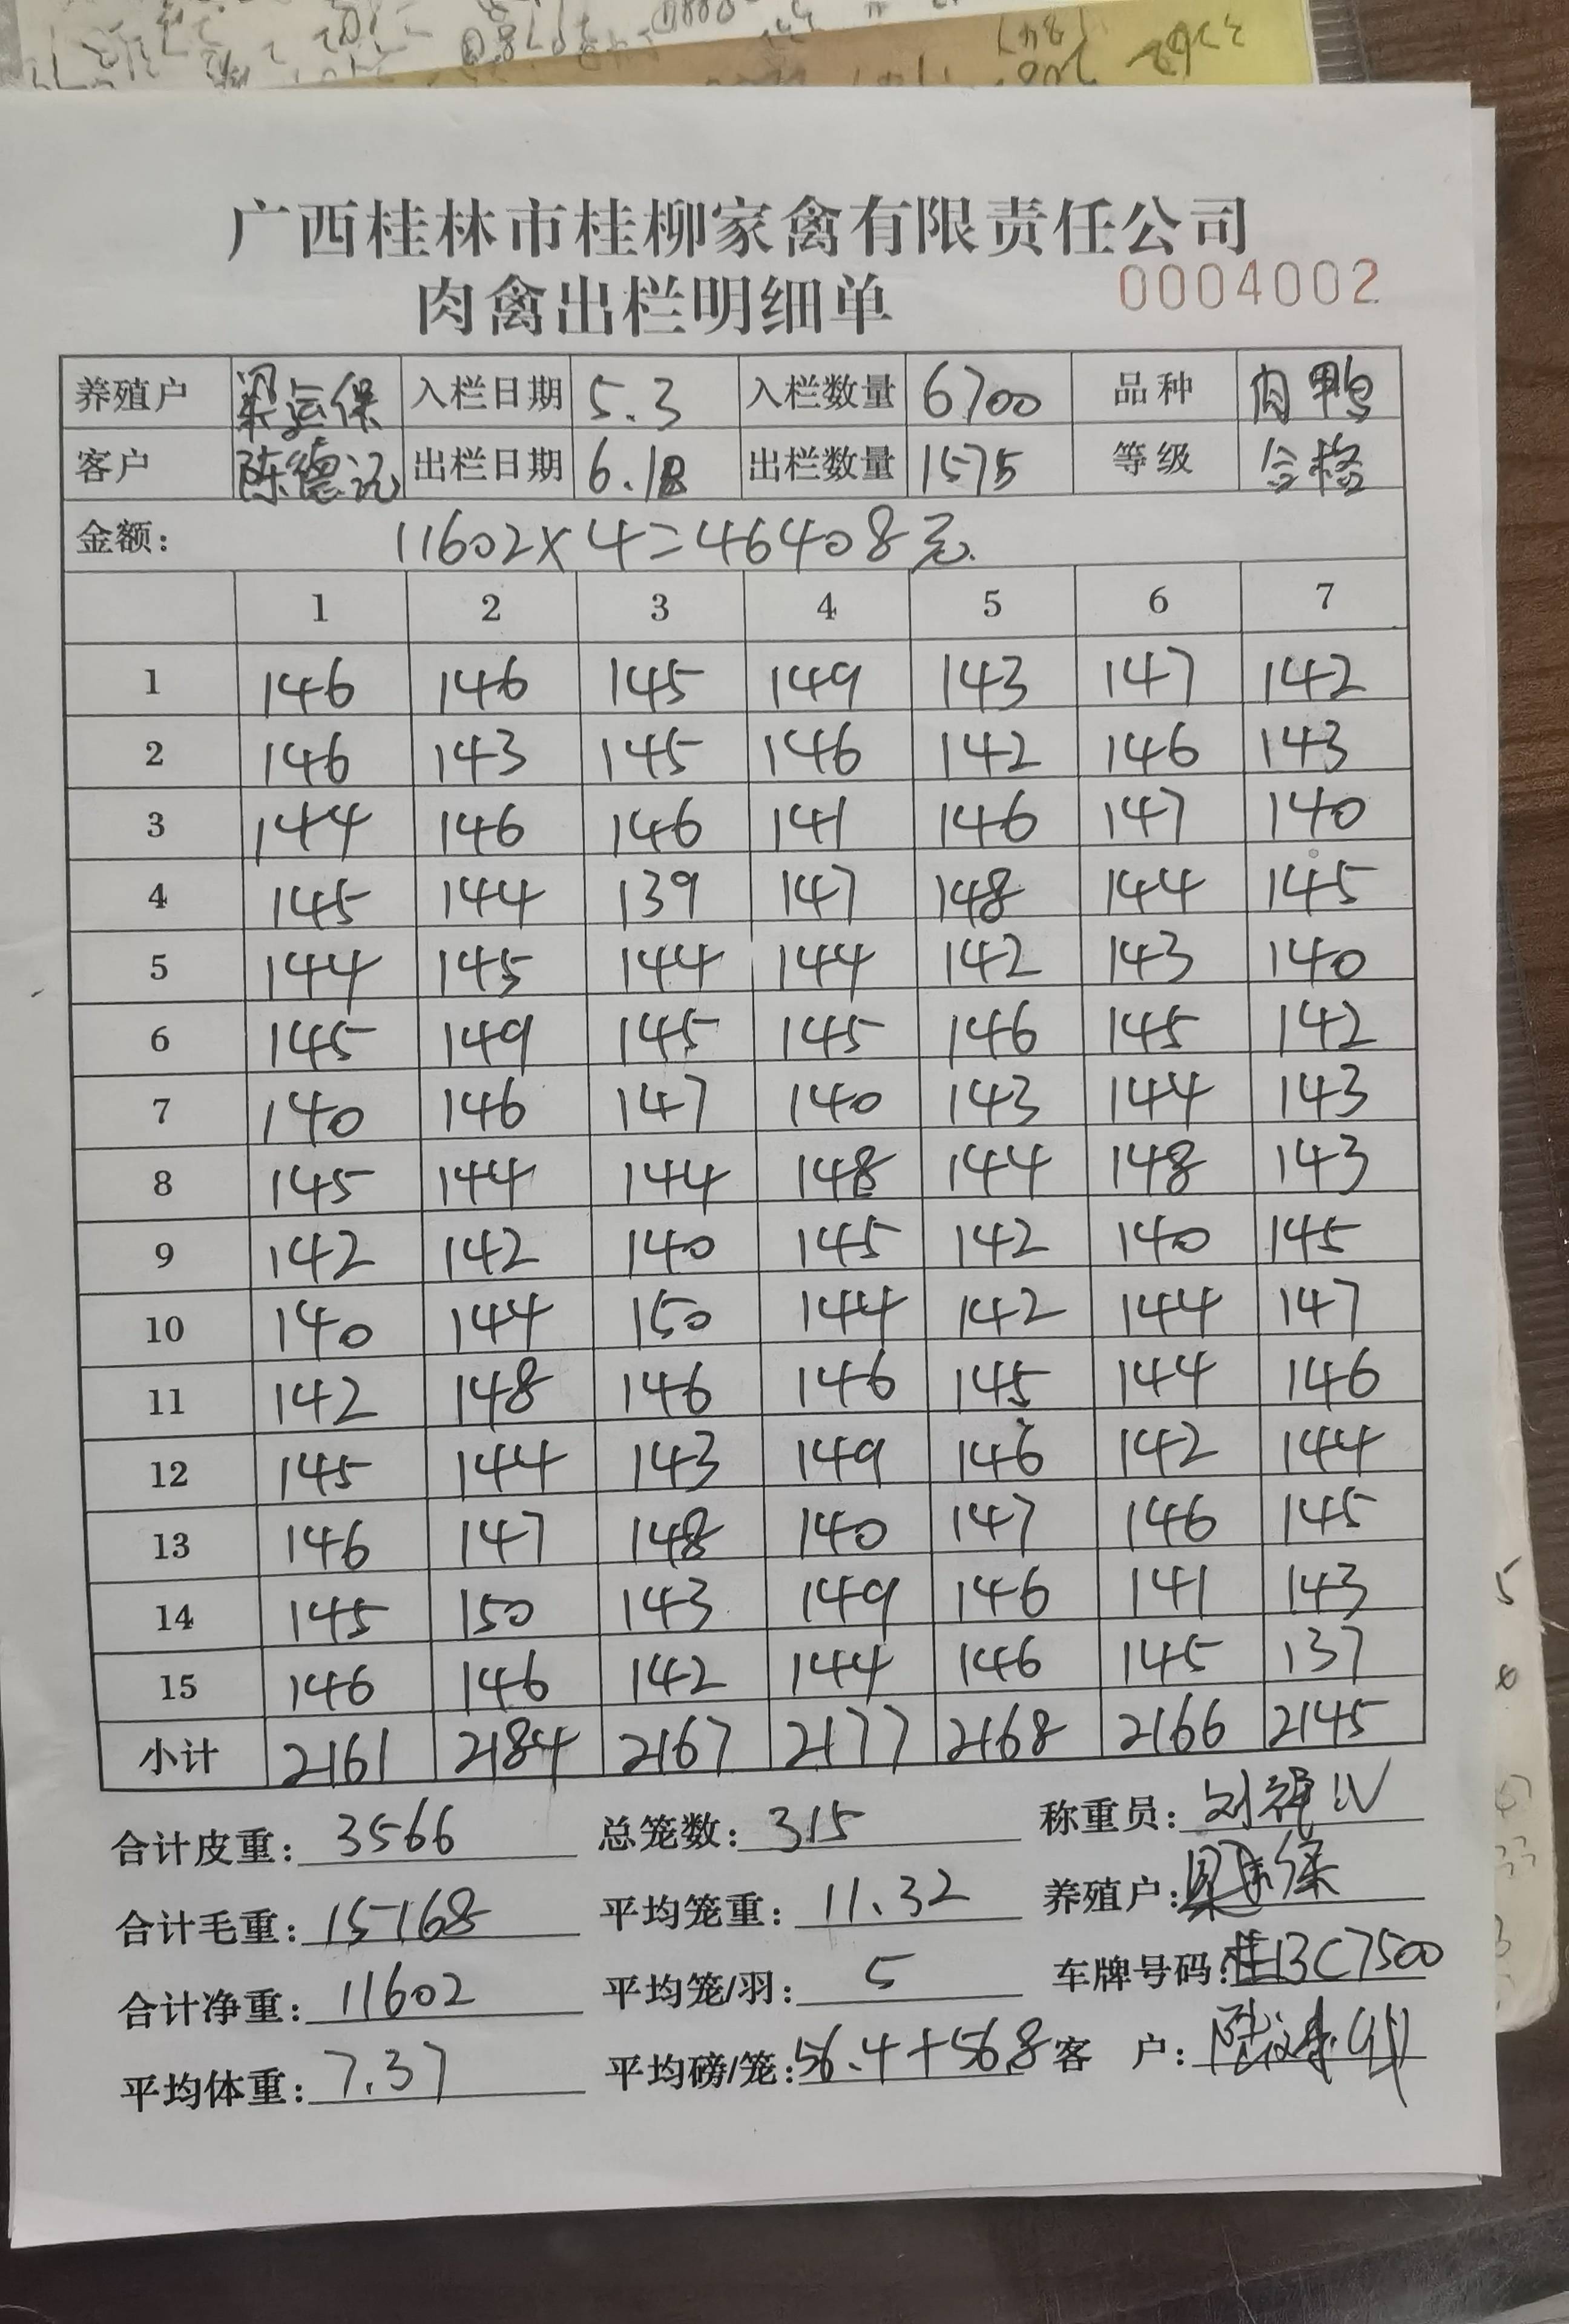 广西桂林市桂柳家禽有限责任公司
肉禽出栏明细单 0004002
养殖户 梁运保 入栏日期 5.3 入栏数量 6700 品种 肉鸭
客户 陈德记 出栏日期 6.18 出栏数量 1575 等级 合格
金额: 11602×4=46408元.
1 2 3 4 5 6 7
1 146 146 145 149 143 147 142
2 146 143 145 146 142 146 143
3 144 146 146 141 146 147 140
4 145 144 139 147 148 144 145
5 144 145 144 144 142 143 140
6 145 149 145 145 146 145 142
7 140 146 147 140 143 144 143
8 145 144 144 148 144 148 143
9 142 142 140 145 142 140 145
10 140 144 150 144 142 144 147
11 142 148 146 146 145 144 146
12 145 144 143 149 146 142 144
13 146 147 148 140 147 146 145
14 145 150 143 149 146 141 143
15 146 146 142 144 146 145 137
小计 2161 2184 2167 2177 2168 2166 2145
合计皮重: 3566 总笼数: 315 称重员: 刘
合计毛重: 15168 平均笼重: 11.32 养殖户: 保
合计净重: 11602 平均笼/羽: 5 车牌号码: 桂BC7500
平均体重: 7.37 平均磅/笼: 56.4+56.8 客 户: